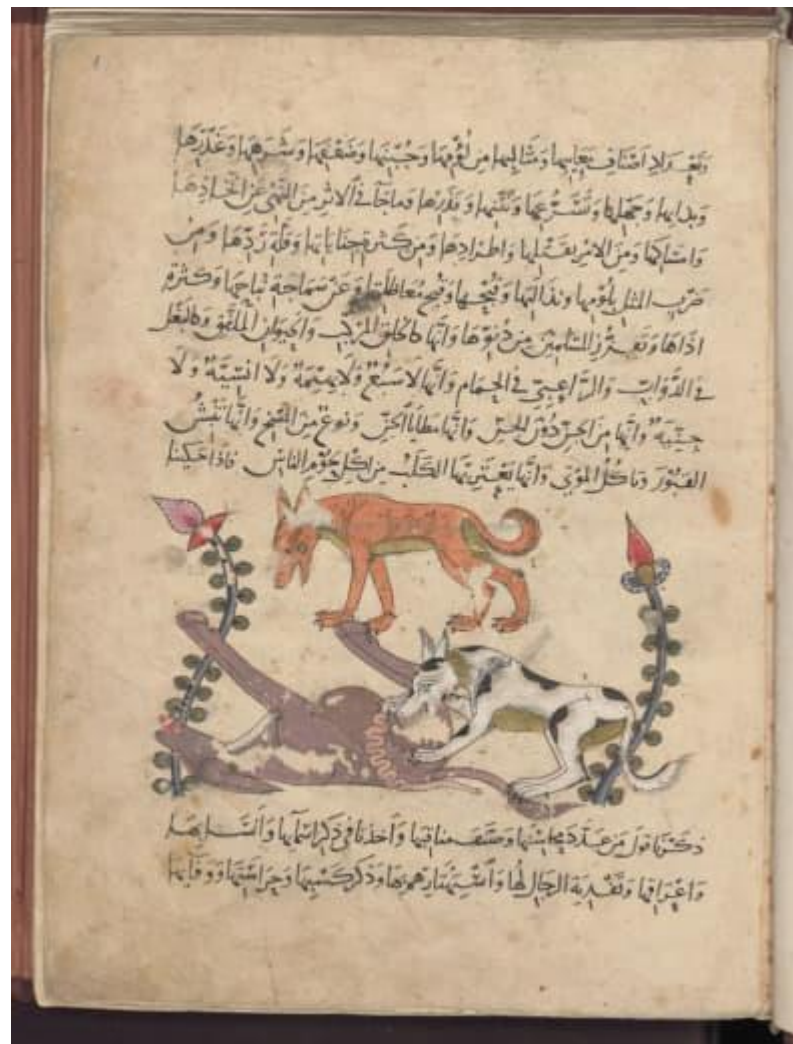 وتعديد اصناف معايبها ومثالبها من لؤمها وجبنها وضعفها وشرهها وغدرها
وبذايها وجهلها وتسرعها ونتنها وقذرها وما جآ في الاثر من النهي عن اتخاذها
وامساكها ومن الامر بقتلها واطرادها ومن كثرة جناياتها وقلة ردها ومن
ضرب المثل بلؤمها ونذالتها وقبحها وقبح معاظلتها وعن سماجة نباحها وكثرة
اذاها وتقزز المسلمين من دنوها وانها كالخلق المركب والحيوان الملفق وكالبغل
في الدواب والراعبي في الحمام وانها لا سبع ولا بهيمة ولا انسية ولا
جنية وانها من الحن دون الجن وانها مطايا الجن ونوع من المسخ وانها تنبش
القبور وتاكل الموتى وانها يعتريها الكلب من اكل لحوم الناس فاذا حكينا
ذكرنا قول من عدد محاسنها وصنف مناقبها واخذنا في ذكر اسمآيها وانسابها
واعراقها وتفدية الرجال لها واستهتارهم بها وذكر كسبها وحراستها ووفايها